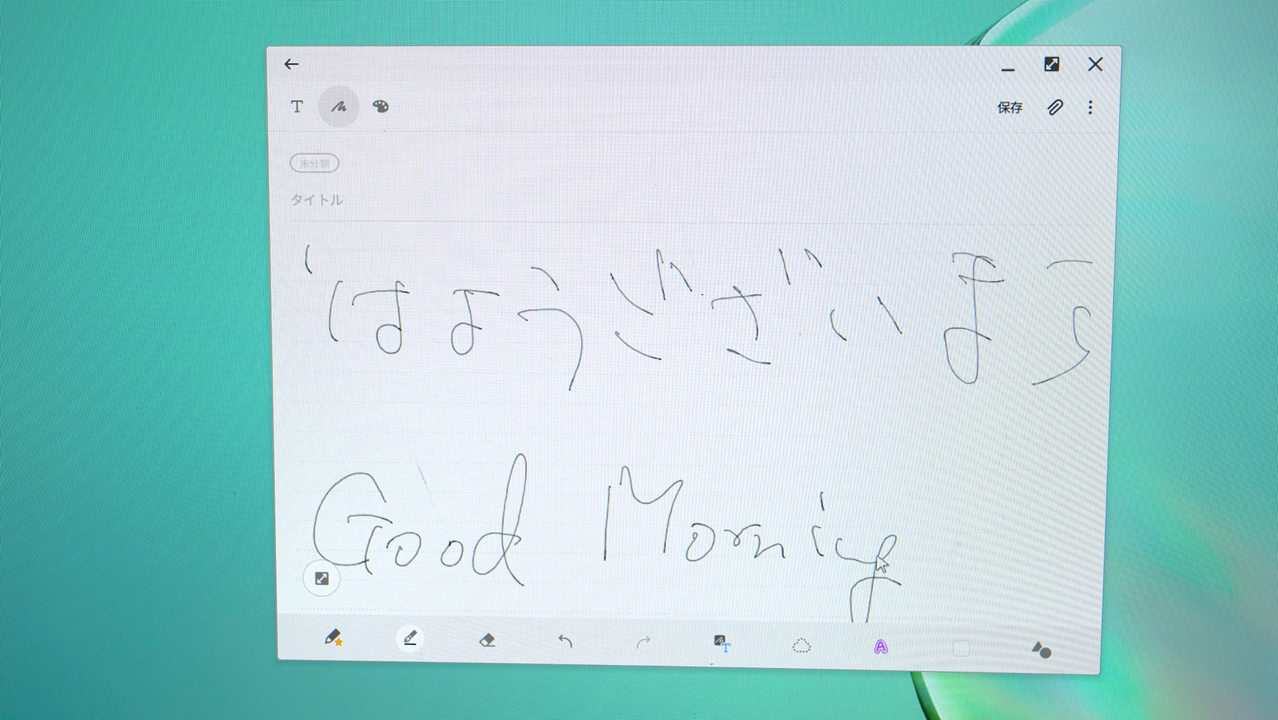 保存
未分類
タイトル
はようございます
Good Morning